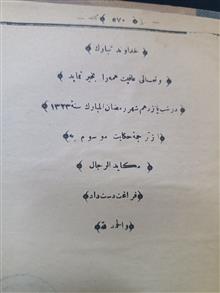 ﴿ ٥٧٠ ﴾
﴿ خداوند تبارك ﴾
﴿ وتعالى عاقبت همه را بخير نمايد ﴾
﴿ در شب پانزدهم شهر رمضان المبارك سنة ١٣٢٣ ﴾
﴿ از ترجمة حكايت موسوم به ﴾
﴿ مكايد الرجال ﴾
﴿ فراغت دست داد ﴾
﴿ والحمد لله ﴾